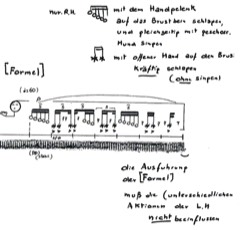 nur R.H.
mit dem Handgelenk
auf das Brustbein schlagen,
und gleichzeitig mit geschloss.
Mund singen
mit offener Hand auf den Brus
Kräftig schlagen
(ohne singen)
[Formel]
die Ausführung
der [Formel]
muß die (unterschiedlichen
Aktionen der L.H
nicht beeinflussen